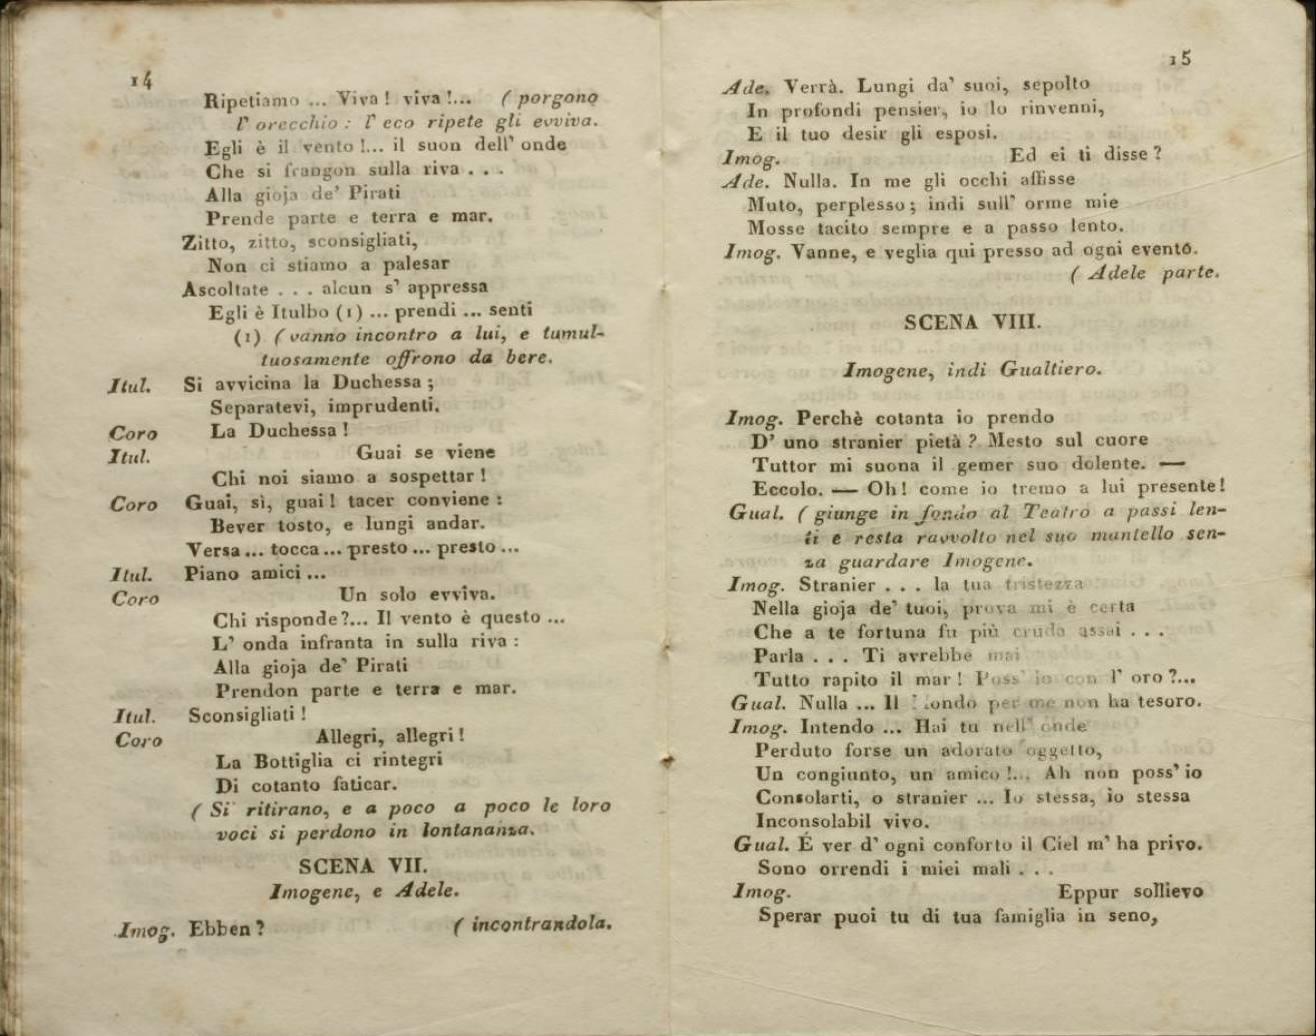 14
Ripetiamo ... Viva ! viva !... ( porgono
l' orecchio : l' eco ripete gli evviva.
Egli è il vento !... il suon dell' onde
Che si frangon sulla riva . . .
Alla gioja de' Pirati
Prende parte e terra e mar.
Zitto, zitto, sconsigliati,
Non ci stiamo a palesar
Ascoltate . . . alcun s' appressa
Egli è Itulbo (1) ... prendi ... senti
(1) ( vanno incontro a lui, e tumul-
tuosamente offrono da bere.
Itul. Si avvicina la Duchessa ;
Separatevi, imprudenti.
Coro La Duchessa !
Itul. Guai se viene
Chi noi siamo a sospettar !
Coro Guai, sì, guai ! tacer conviene :
Bever tosto, e lungi andar.
Versa ... tocca ... presto ... presto ...
Itul. Piano amici ...
Coro Un solo evviva.
Chi risponde ?... Il vento è questo ...
L' onda infranta in sulla riva :
Alla gioja de' Pirati
Prendon parte e terra e mar.
Itul. Sconsigliati !
Coro Allegri, allegri !
La Bottiglia ci rintegri
Di cotanto faticar.
( Si ritirano, e a poco a poco le loro
voci si perdono in lontananza.
SCENA VII.
Imogene, e Adele.
Imog. Ebben ? ( incontrandola.
15
Ade. Verrà. Lungi da' suoi, sepolto
In profondi pensier, io lo rinvenni,
E il tuo desir gli esposi.
Imog. Ed ei ti disse ?
Ade. Nulla. In me gli occhi affisse
Muto, perplesso ; indi sull' orme mie
Mosse tacito sempre e a passo lento.
Imog. Vanne, e veglia qui presso ad ogni evento.
( Adele parte.
SCENA VIII.
Imogene, indi Gualtiero.
Imog. Perchè cotanta io prendo
D' uno stranier pietà ? Mesto sul cuore
Tuttor mi suona il gemer suo dolente. —
Eccolo. — Oh ! come io tremo a lui presente !
Gual. ( giunge in fondo al Teatro a passi len-
ti e resta ravvolto nel suo mantello sen-
za guardare Imogene.
Imog. Stranier . . . la tua tristezza
Nella gioja de' tuoi, prova mi è certa
Che a te fortuna fu più cruda assai . . .
Parla . . . Ti avrebbe mai
Tutto rapito il mar ! Poss' io con l' oro ?...
Gual. Nulla ... Il Mondo per me non ha tesoro.
Imog. Intendo ... Hai tu nell' onde
Perduto forse un adorato oggetto,
Un congiunto, un amico !... Ah non poss' io
Consolarti, o stranier ... Io stessa, io stessa
Inconsolabil vivo.
Gual. É ver d' ogni conforto il Ciel m' ha privo.
Sono orrendi i miei mali . . .
Imog. Eppur sollievo
Sperar puoi tu di tua famiglia in seno,